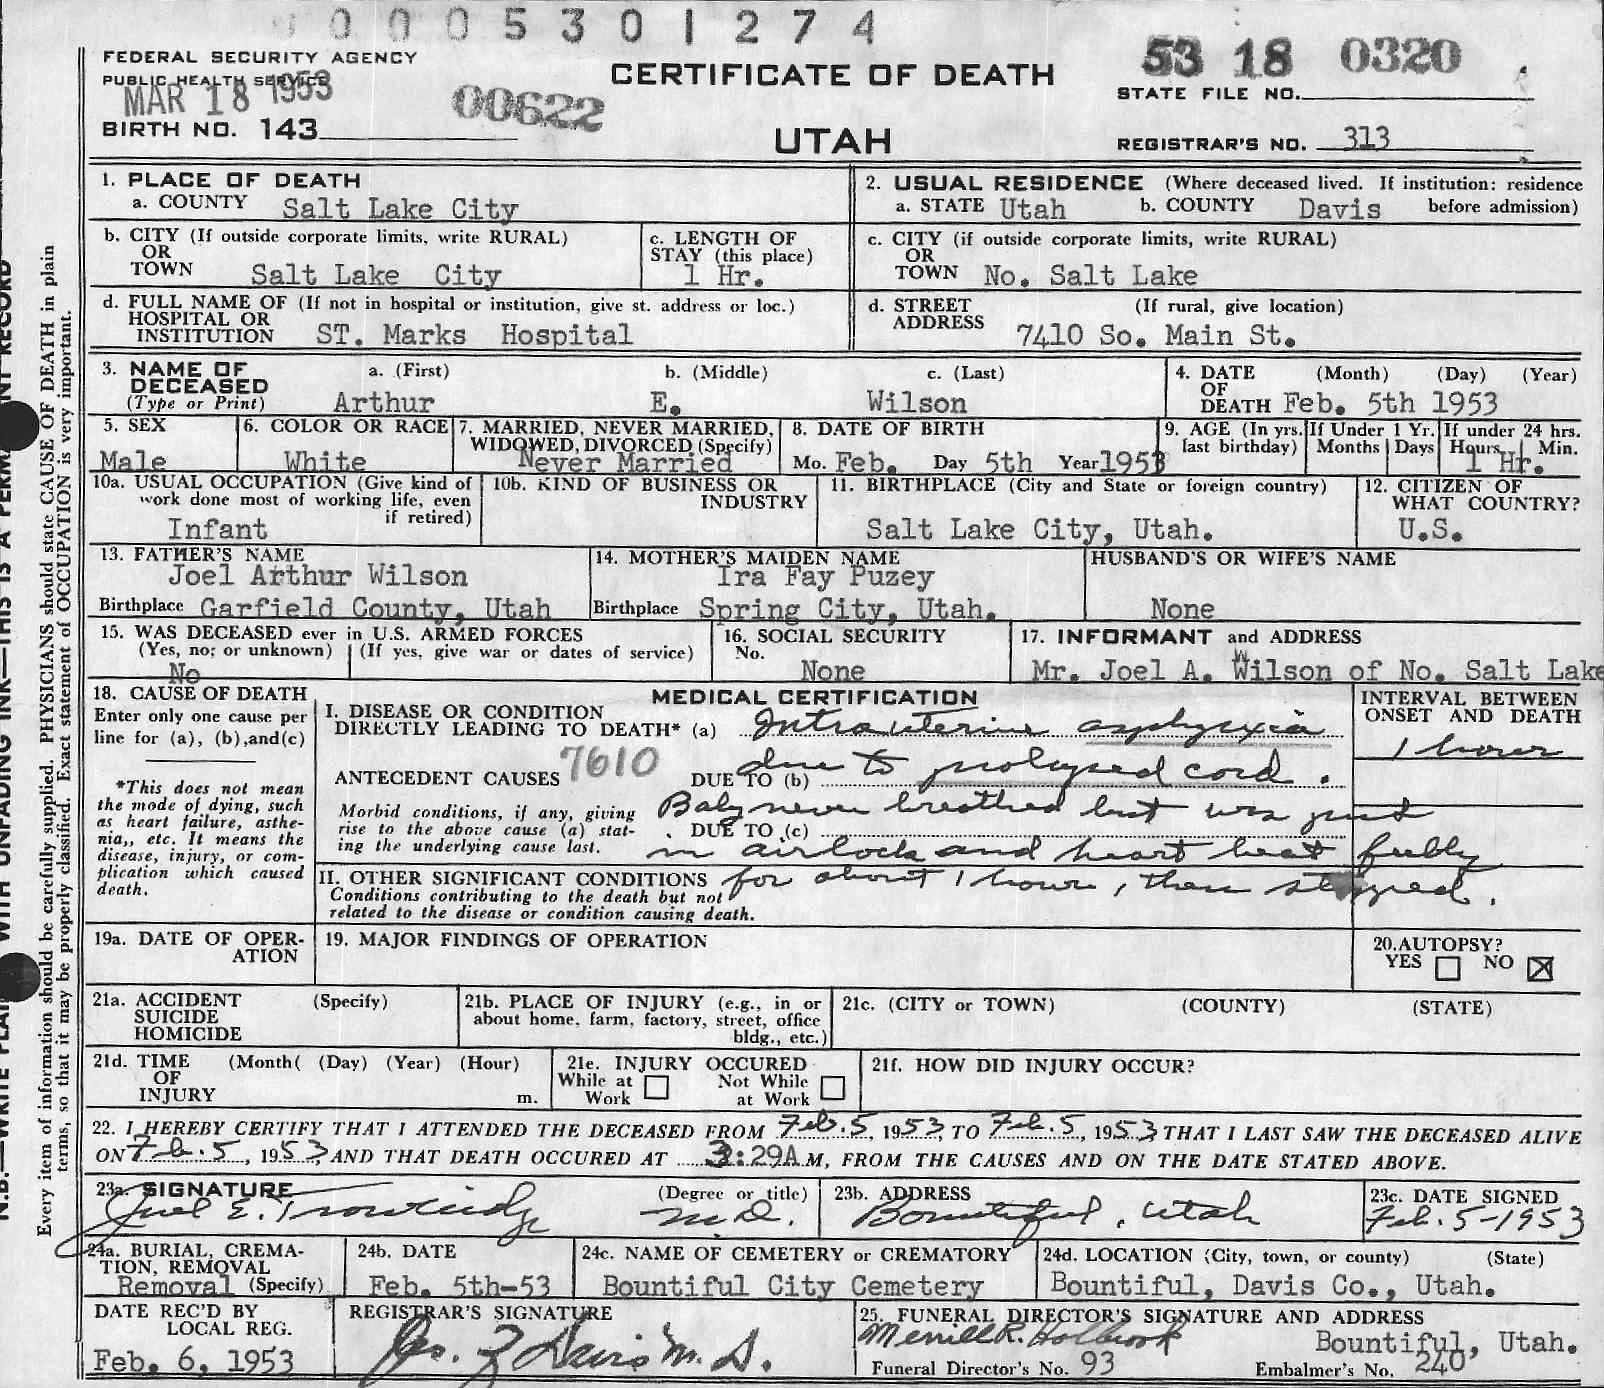 0 0 0 5 3 0 1 2 7 4
FEDERAL SECURITY AGENCY
PUBLIC HEALTH SERVICE
MAR 18 1953
00622
BIRTH NO. 143
CERTIFICATE OF DEATH
UTAH
53 18 0320
STATE FILE NO.
REGISTRAR'S NO. 313
1. PLACE OF DEATH
a. COUNTY Salt Lake City
2. USUAL RESIDENCE (Where deceased lived. If institution: residence before admission)
a. STATE Utah b. COUNTY Davis
b. CITY (If outside corporate limits, write RURAL)
OR
TOWN Salt Lake City
c. LENGTH OF
STAY (this place)
1 Hr.
c. CITY (if outside corporate limits, write RURAL)
OR
TOWN No. Salt Lake
d. FULL NAME OF (If not in hospital or institution, give st. address or loc.)
HOSPITAL OR
INSTITUTION ST. Marks Hospital
d. STREET (If rural, give location)
ADDRESS 7410 So. Main St.
3. NAME OF DECEASED (Type or Print)
a. (First) b. (Middle) c. (Last)
Arthur E. Wilson
4. DATE OF DEATH (Month) (Day) (Year)
Feb. 5th 1953
5. SEX
Male
6. COLOR OR RACE
White
7. MARRIED, NEVER MARRIED,
WIDOWED, DIVORCED (Specify)
Never Married
8. DATE OF BIRTH
Mo. Feb. Day 5th Year 1953
9. AGE (In yrs. last birthday)
If Under 1 Yr. Months Days
If under 24 hrs. Hours Min.
1 Hr.
10a. USUAL OCCUPATION (Give kind of
work done most of working life, even
if retired)
Infant
10b. KIND OF BUSINESS OR
INDUSTRY
11. BIRTHPLACE (City and State or foreign country)
Salt Lake City, Utah.
12. CITIZEN OF
WHAT COUNTRY?
U.S.
13. FATHER'S NAME
Joel Arthur Wilson
Birthplace Garfield County, Utah
14. MOTHER'S MAIDEN NAME
Ira Fay Puzey
Birthplace Spring City, Utah.
HUSBAND'S OR WIFE'S NAME
None
15. WAS DECEASED ever in U.S. ARMED FORCES
(Yes, no; or unknown) (If yes, give war or dates of service)
No
16. SOCIAL SECURITY
No.
None
17. INFORMANT and ADDRESS
Mr. Joel A. Wilson of No. Salt Lake
18. CAUSE OF DEATH
Enter only one cause per
line for (a), (b),and(c)
*This does not mean
the mode of dying, such
as heart failure, asthe-
nia,, etc. It means the
disease, injury, or com-
plication which caused
death.
MEDICAL CERTIFICATION
I. DISEASE OR CONDITION
DIRECTLY LEADING TO DEATH* (a) Intrauterine asphyxia
7610
ANTECEDENT CAUSES DUE TO (b) due to prolapsed cord.
Morbid conditions, if any, giving
rise to the above cause (a) stat-
ing the underlying cause last.
DUE TO (c)
Baby never breathed but was put
in airlock and heart beat feebly
for about 1 hour, then stopped.
II. OTHER SIGNIFICANT CONDITIONS
Conditions contributing to the death but not
related to the disease or condition causing death.
INTERVAL BETWEEN
ONSET AND DEATH
1 hour
19a. DATE OF OPER-
ATION
19. MAJOR FINDINGS OF OPERATION
20.AUTOPSY?
YES NO
21a. ACCIDENT (Specify)
SUICIDE
HOMICIDE
21b. PLACE OF INJURY (e.g., in or
about home, farm, factory, street, office
bldg., etc.)
21c. (CITY or TOWN) (COUNTY) (STATE)
21d. TIME (Month( (Day) (Year) (Hour)
OF
INJURY m.
21e. INJURY OCCURED
While at Work Not While at Work
21f. HOW DID INJURY OCCUR?
22. I HEREBY CERTIFY THAT I ATTENDED THE DECEASED FROM Feb. 5, 1953, TO Feb. 5, 1953 THAT I LAST SAW THE DECEASED ALIVE
ON Feb. 5, 1953, AND THAT DEATH OCCURED AT 3:29A M, FROM THE CAUSES AND ON THE DATE STATED ABOVE.
23a. SIGNATURE (Degree or title)
Joel E. Trowbridge M.D.
23b. ADDRESS
Bountiful, Utah
23c. DATE SIGNED
Feb. 5-1953
24a. BURIAL, CREMA-
TION, REMOVAL
Removal (Specify)
24b. DATE
Feb. 5th-53
24c. NAME OF CEMETERY OR CREMATORY
Bountiful City Cemetery
24d. LOCATION (City, town, or county) (State)
Bountiful, Davis Co., Utah.
DATE REC'D BY
LOCAL REG.
Feb. 6, 1953
REGISTRAR'S SIGNATURE
Jos. Z Davis M. D.
25. FUNERAL DIRECTOR'S SIGNATURE AND ADDRESS
Merrill R. Holbrook Bountiful, Utah.
Funeral Director's No. 93 Embalmer's No. 240
Every item of information should be carefully supplied. PHYSICIANS should state CAUSE OF DEATH in plain
terms, so that it may be properly classified. Exact statement of OCCUPATION is very important.